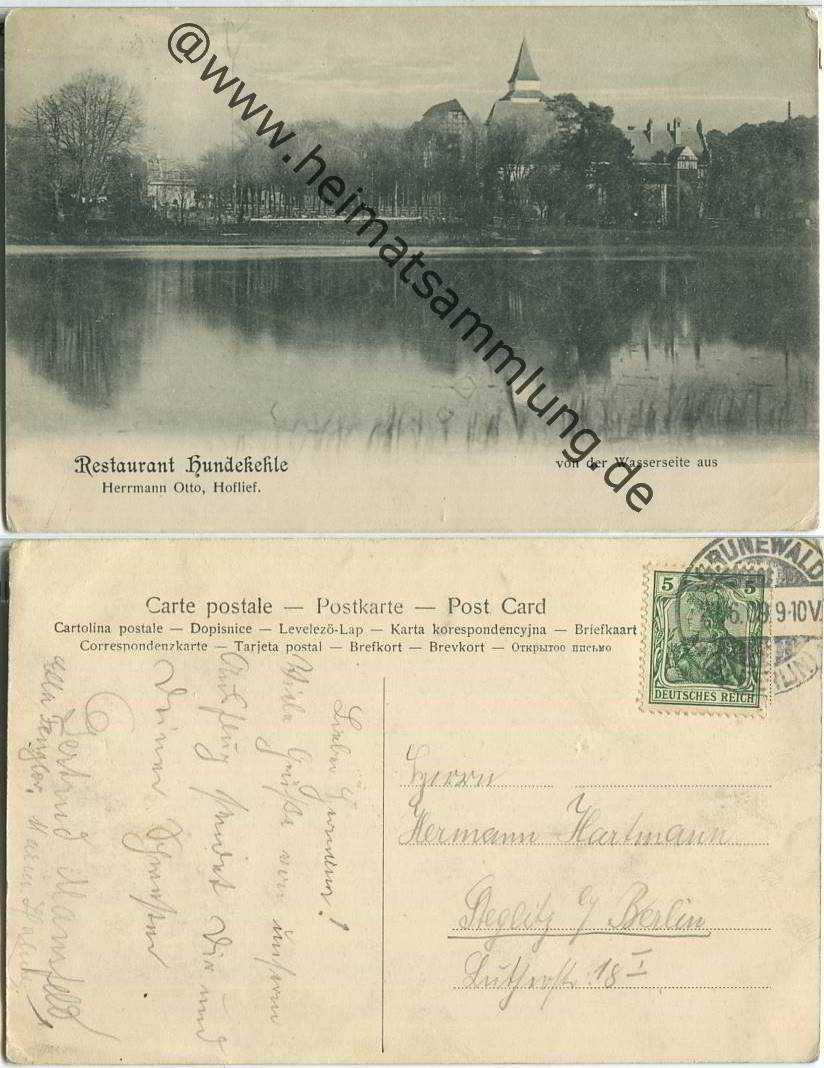 @www.heimatsammlung.de
Restaurant Hundekehle
Herrmann Otto, Hoflief.
von der Wasserseite aus
GRUNEWALD
6.09.9-10V.
BERLIN
5 5
DEUTSCHES REICH
Carte postale — Postkarte — Post Card
Cartolina postale — Dopisnice — Levelező-Lap — Karta korespondencyjna — Briefkaart
Correspondenzkarte — Tarjeta postal — Brefkort — Brevkort — Открытое письмо
Lieber Hermann!
Viele Grüße von unserm
Ausflug sendet Dir und
Deiner Schwester
Gertrud
Ella
Herrn
Hermann Hartmann
Steglitz b/ Berlin
Lutherstr. 18 I